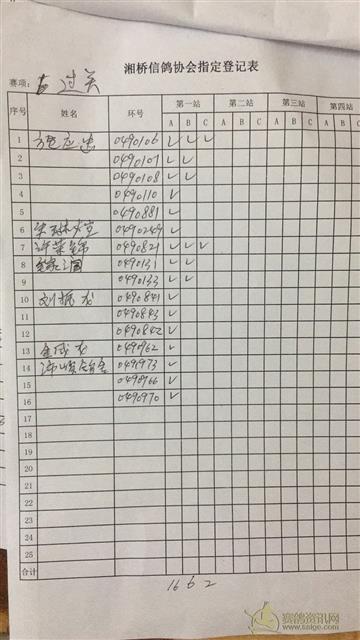 湘桥信鸽协会指定登记表
赛项: 过关
序号 姓名 环号 第一站 第二站 第三站 第四站
A B C A B C A B C A B
1 0490106 ✓ ✓ ✓
2 0490107 ✓ ✓
3 0490108 ✓ ✓
4 0490110 ✓
5 0490881 ✓
6 0490249 ✓
7 许荣锦 0490821 ✓ ✓ ✓
8 0490131 ✓ ✓
9 0490133 ✓ ✓
10 刘振龙 0490841 ✓
11 0490843 ✓
12 0490842 ✓
13 金成龙 0490962 ✓
14 0490973 ✓
15 0490966 ✓
16 0490970 ✓
17
18
19
20
21
22
23
24
25
合计
16 6 2
赛鸽资讯网
www.saige.com